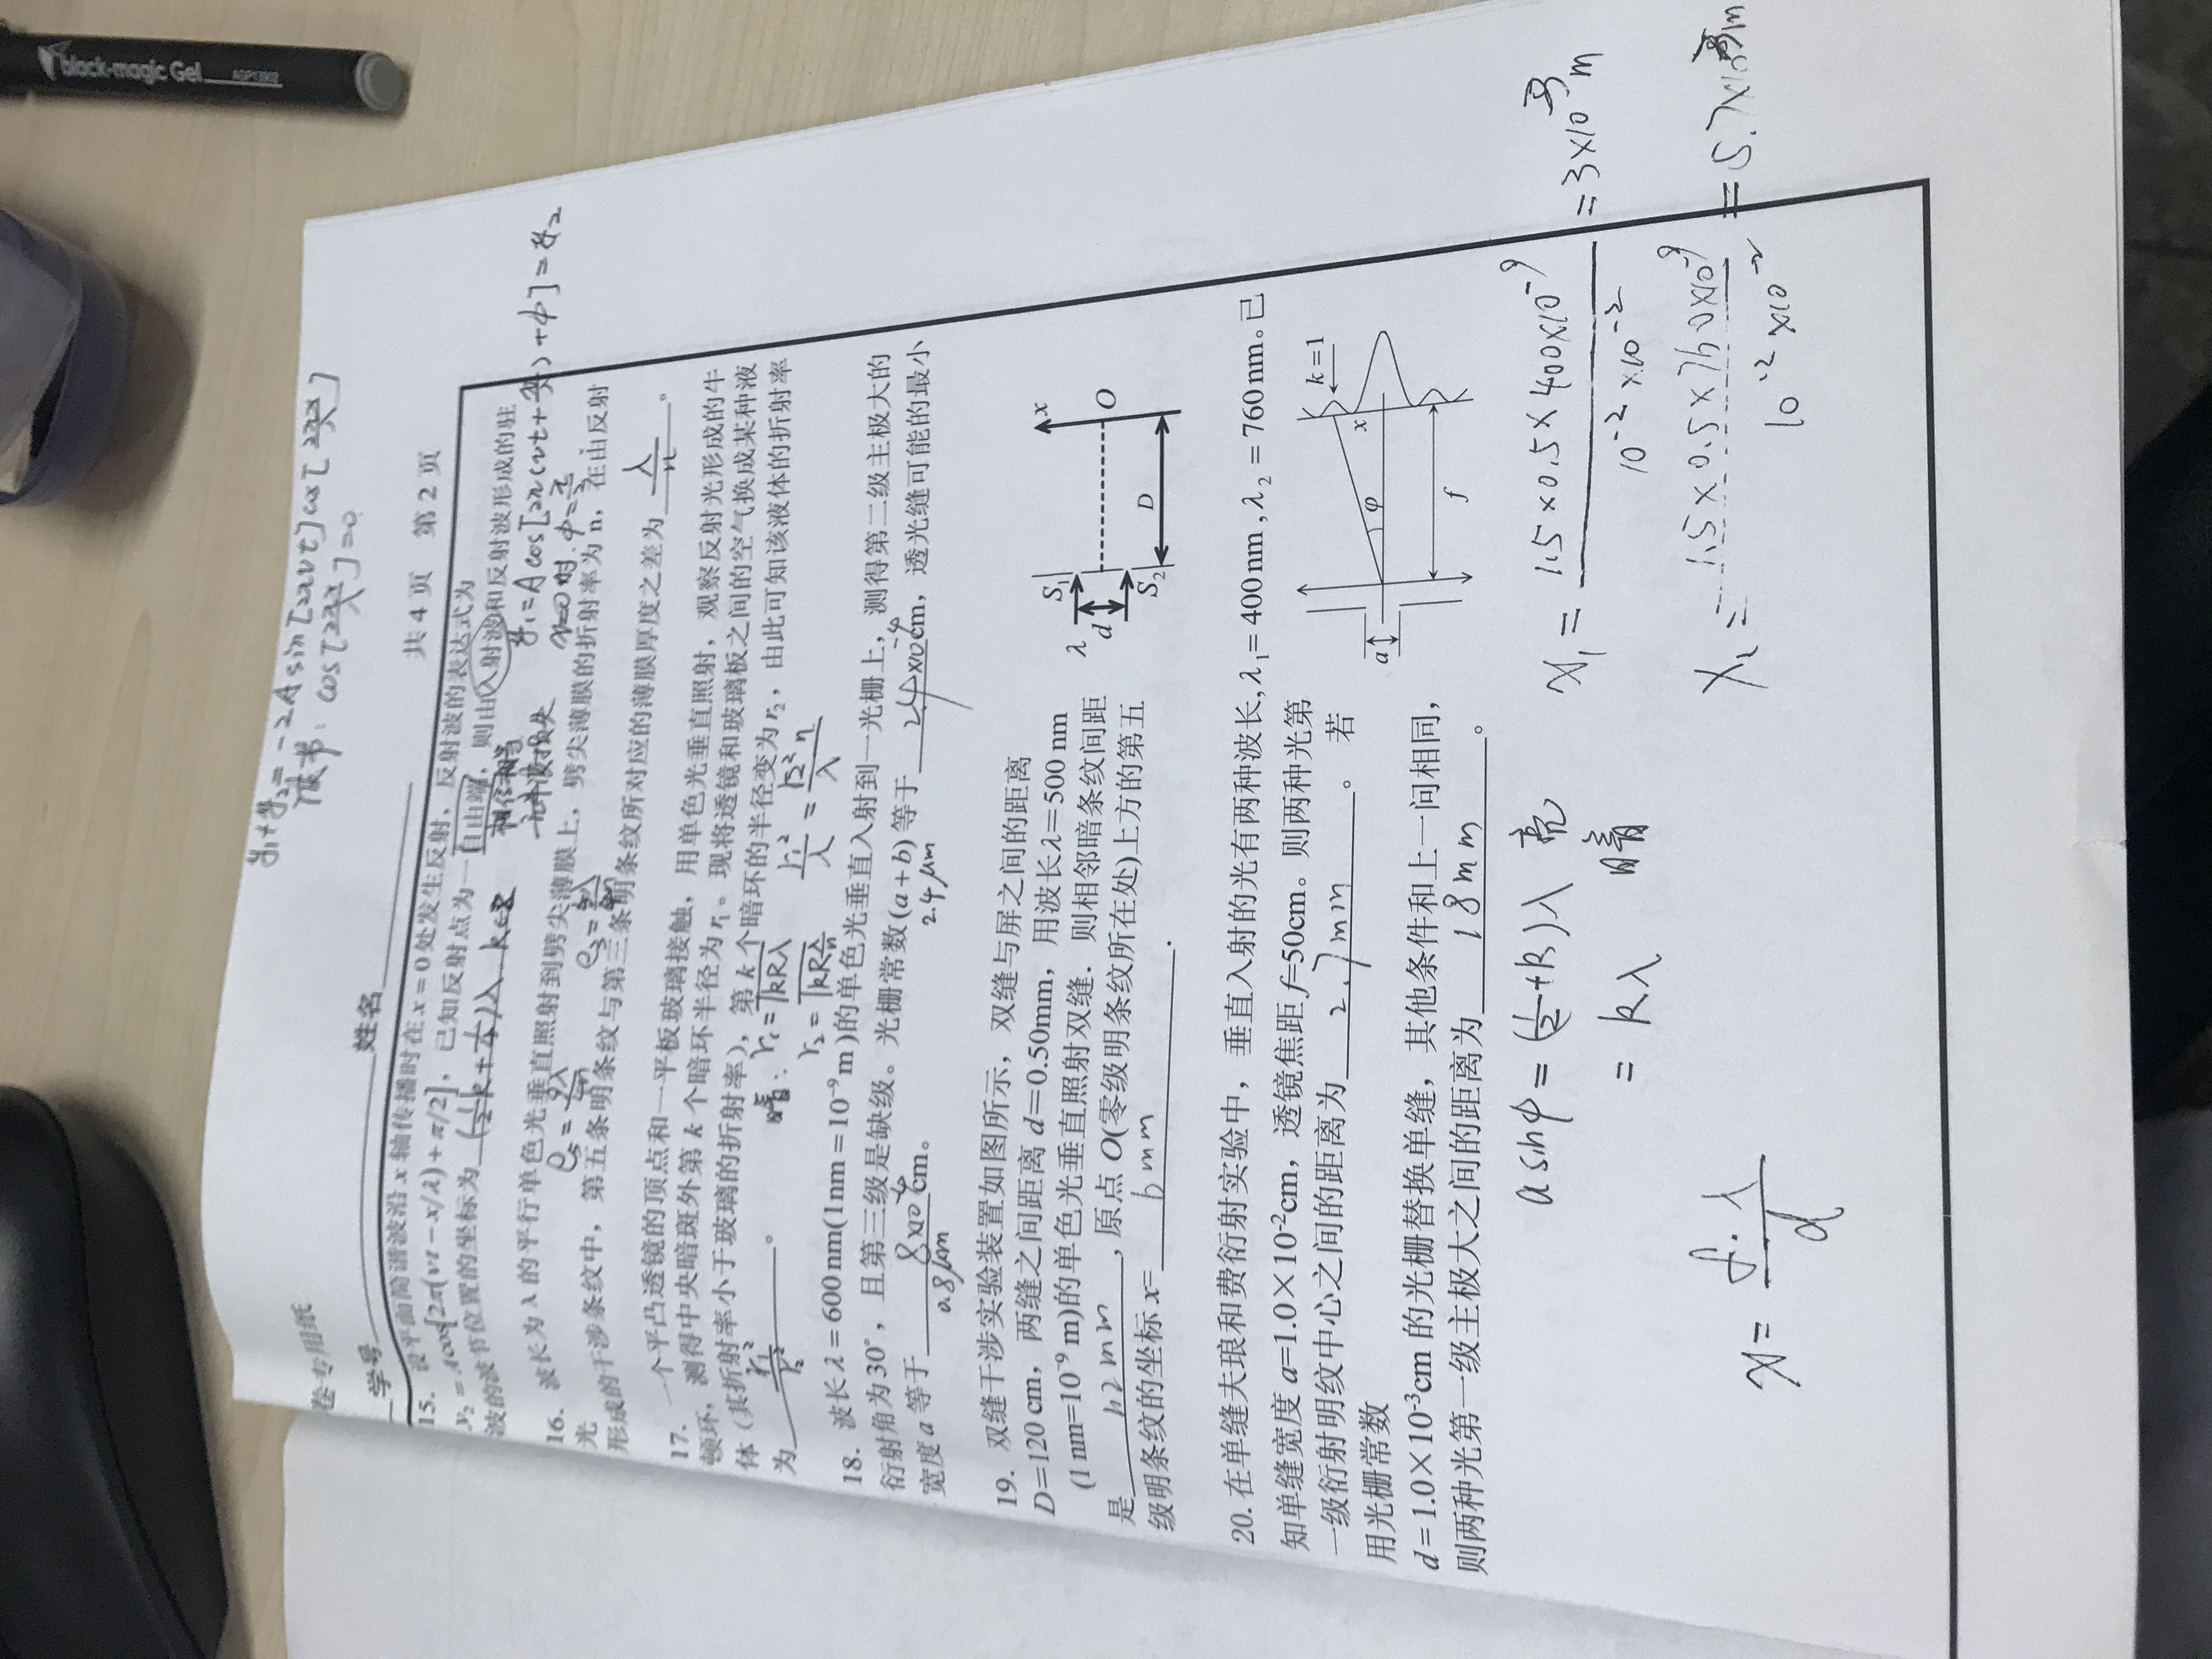 black-magic Gel
y₁+y₂=-2Asin[2πνt]cos[2πx/λ]
波节: cos[2πx/λ]=0
卷专用纸
学号 姓名
共 4 页 第 2 页
15. 设平面简谐波沿 x 轴传播时在 x = 0 处发生反射,反射波的表达式为
y₂ = Acos[2π(νt − x/λ) + π/2],已知反射点为一自由端,则由入射波和反射波形成的驻
波的波节位置的坐标为 (1/2k+1/4)λ k∈Z
相位相当
无半波损失
y₁=Acos[2π(νt+x/λ)+φ]=y₂
x=0时.φ=π/2
16. 波长为 λ 的平行单色光垂直照射到劈尖薄膜上,劈尖薄膜的折射率为 n,在由反射
光
e₅=9λ/4n e₃=5λ/4n
形成的干涉条纹中,第五条明条纹与第三条明条纹所对应的薄膜厚度之差为 λ/n 。
17. 一个平凸透镜的顶点和一平板玻璃接触,用单色光垂直照射,观察反射光形成的牛
顿环,测得中央暗斑外第 k 个暗环半径为 r₁。现将透镜和玻璃板之间的空气换成某种液
体(其折射率小于玻璃的折射率),第 k 个暗环的半径变为 r₂,由此可知该液体的折射率
为 r₁²/r₂² 。
暗: r₁=√kRλ
r₂=√kRλ/n r₁²/λ=r₂²n/λ
18. 波长 λ = 600 nm(1nm = 10⁻⁹ m)的单色光垂直入射到一光栅上,测得第二级主极大的
衍射角为30°,且第三级是缺级。光栅常数 (a + b) 等于 2.4×10⁻⁴ cm,透光缝可能的最小
宽度 a 等于 8×10⁻⁵ cm。
0.8μm 2.4μm
19. 双缝干涉实验装置如图所示,双缝与屏之间的距离
D=120 cm,两缝之间距离 d=0.50mm,用波长λ=500 nm
(1 nm=10⁻⁹ m)的单色光垂直照射双缝.则相邻暗条纹间距
是 1.2mm ,原点 O(零级明条纹所在处)上方的第五
级明条纹的坐标 x= 6mm .
λ S₁ d S₂ D x O
20. 在单缝夫琅和费衍射实验中,垂直入射的光有两种波长, λ₁= 400 nm , λ₂ = 760 nm。已
知单缝宽度 a=1.0×10⁻²cm,透镜焦距 f=50cm。则两种光第
一级衍射明纹中心之间的距离为 2.7mm 。 若
用光栅常数
d = 1.0×10⁻³cm 的光栅替换单缝,其他条件和上一问相同,
则两种光第一级主极大之间的距离为 18mm 。
a φ x k = 1 f
asinφ=(1/2+k)λ 亮
=kλ 暗
x₁=1.5×0.5×400×10⁻⁹/10⁻²×10⁻²=3×10⁻³m
x₂=1.5×0.5×760×10⁻⁹/10⁻²×10⁻²=5.7×10⁻³m
x=f·λ/d